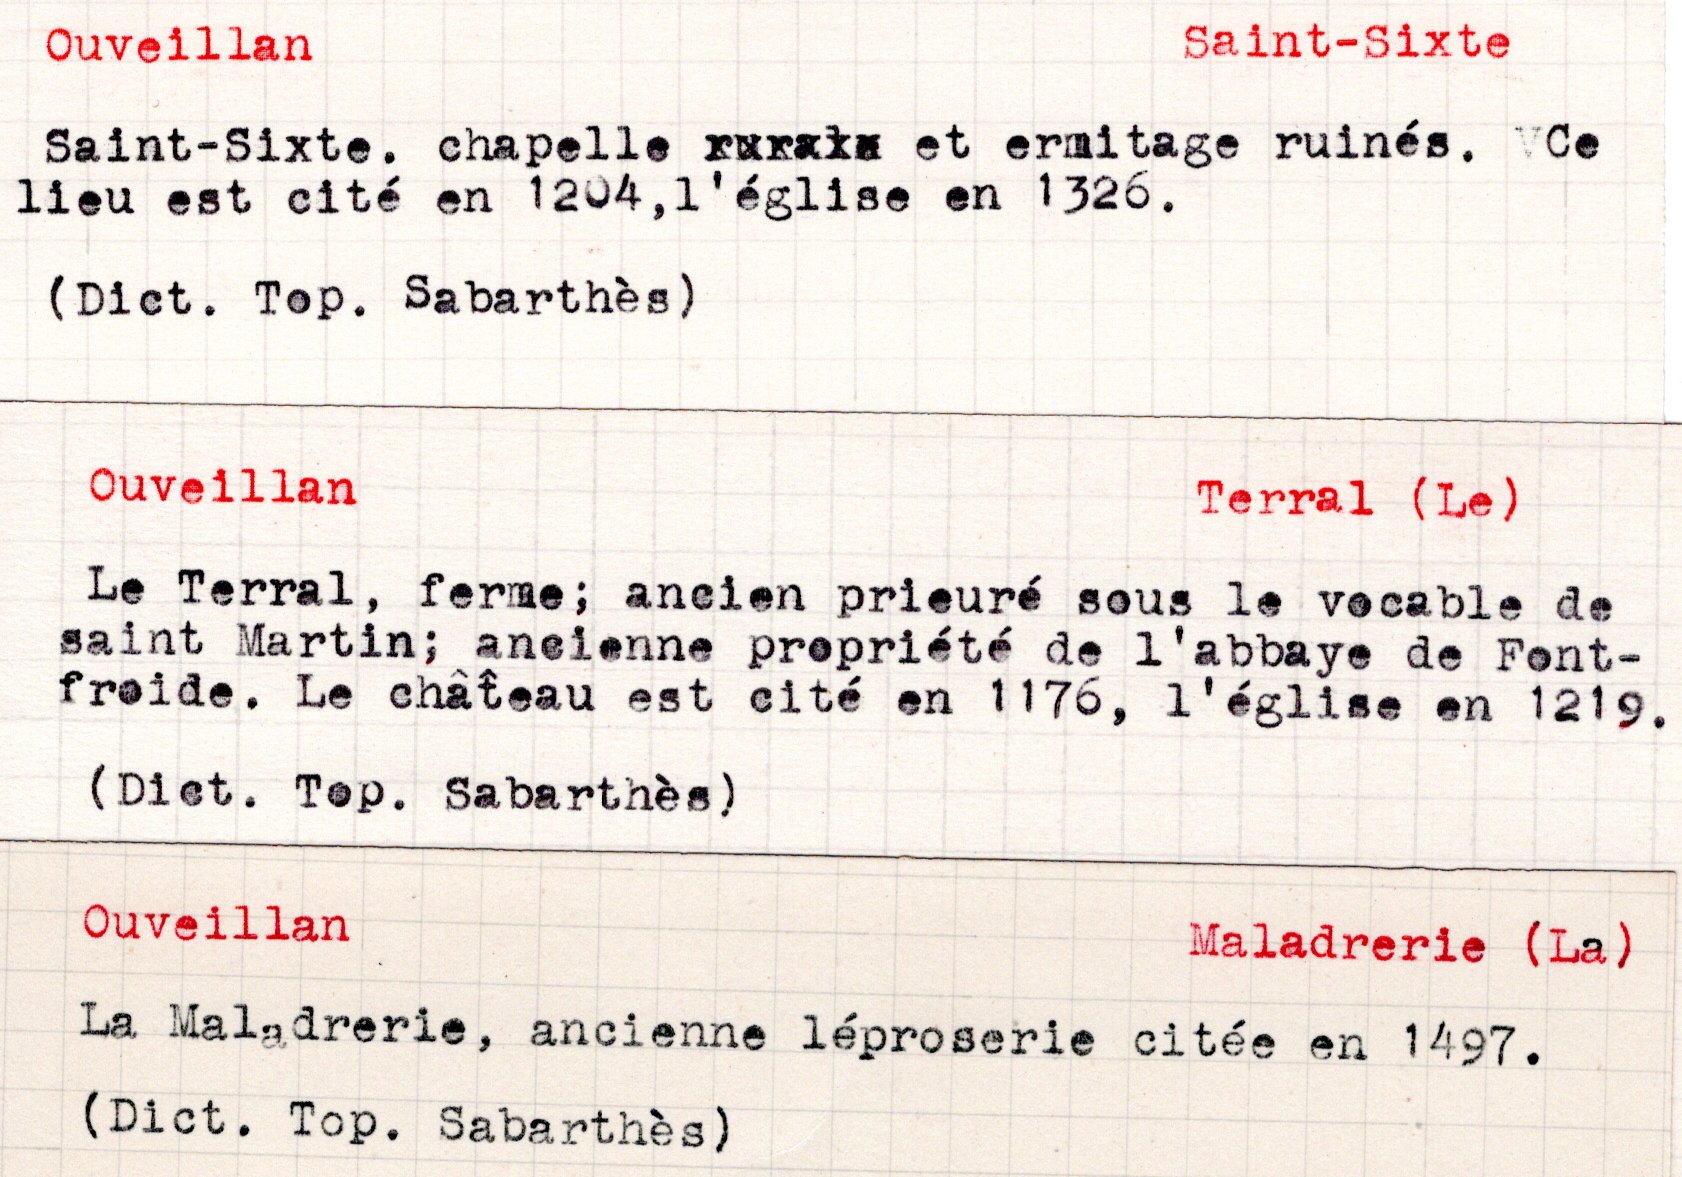 Ouveillan Saint-Sixte
Saint-Sixte. chapelle et ermitage ruinés. Ce
lieu est cité en 1204,l'église en 1326.
(Dict. Top. Sabarthès)
Ouveillan Terral (Le)
Le Terral, ferme; ancien prieuré sous le vocable de
saint Martin; ancienne propriété de l'abbaye de Font-
froide. Le château est cité en 1176, l'église en 1219.
(Dict. Top. Sabarthès)
Ouveillan Maladrerie (La)
La Maladrerie, ancienne léproserie citée en 1497.
(Dict. Top. Sabarthès)